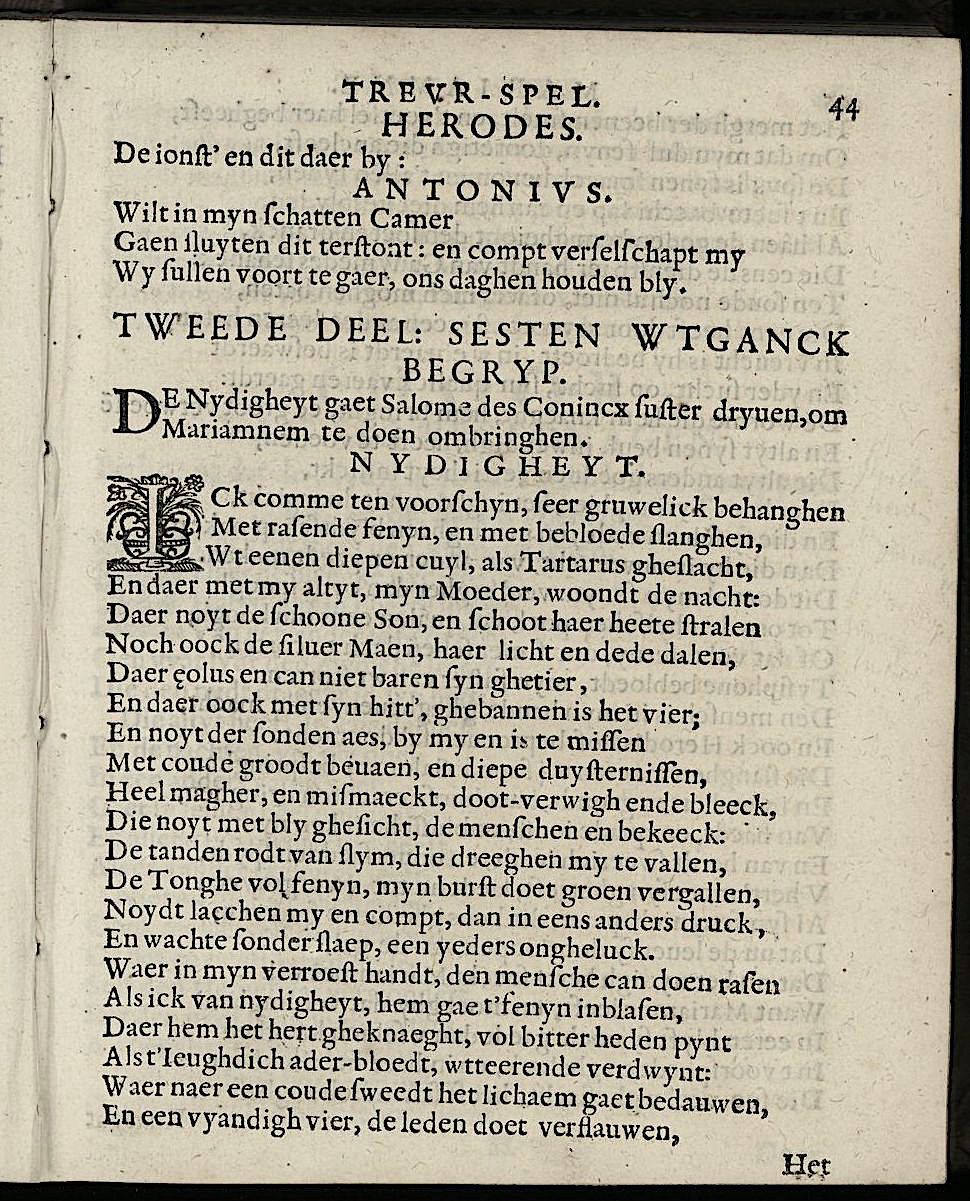 TREVR-SPEL.
44
HERODES.
De ionſt' en dit daer by :
ANTONIVS.
Wilt in myn ſchatten Camer
Gaen ſluyten dit terſtont : en compt verſelſchapt my
Wy ſullen voort te gaer, ons daghen houden bly.
TWEEDE DEEL: SESTEN WTGANCK
BEGRYP.
DE Nydigheyt gaet Salome des Conincx ſuſter dryuen, om
Mariamnem te doen ombringhen.
NYDIGHEYT.
ICk comme ten voorſchyn, ſeer gruwelick behanghen
Met raſende fenyn, en met bebloede ſlanghen,
Wt eenen diepen cuyl, als Tartarus gheſlacht,
En daer met my altyt, myn Moeder, woondt de nacht:
Daer noyt de ſchoone Son, en ſchoot haer heete ſtralen
Noch oock de ſiluer Maen, haer licht en dede dalen,
Daer ęolus en can niet baren ſyn ghetier,
En daer oock met ſyn hitt', ghebannen is het vier;
En noyt der ſonden aes, by my en is te miſſen
Met coude groodt beuaen, en diepe duyſterniſſen,
Heel magher, en miſmaeckt, doot-verwigh ende bleeck,
Die noyt met bly gheſicht, de menſchen en bekeeck:
De tanden rodt van ſlym, die dreeghen my te vallen,
De Tonghe vol fenyn, myn burſt doet groen vergallen,
Noydt lacchen my en compt, dan in eens anders druck,
En wachte ſonder ſlaep, een yeders ongheluck.
Waer in myn verroeſt handt, den menſche can doen raſen
Als ick van nydigheyt, hem gae t'fenyn inblaſen,
Daer hem het hert gheknaeght, vol bitter heden pynt
Als t'Ieughdich ader-bloedt, wtteerende verdwynt:
Waer naer een coude ſweedt het lichaem gaet bedauwen,
En een vyandigh vier, de leden doet verflauwen,
Het